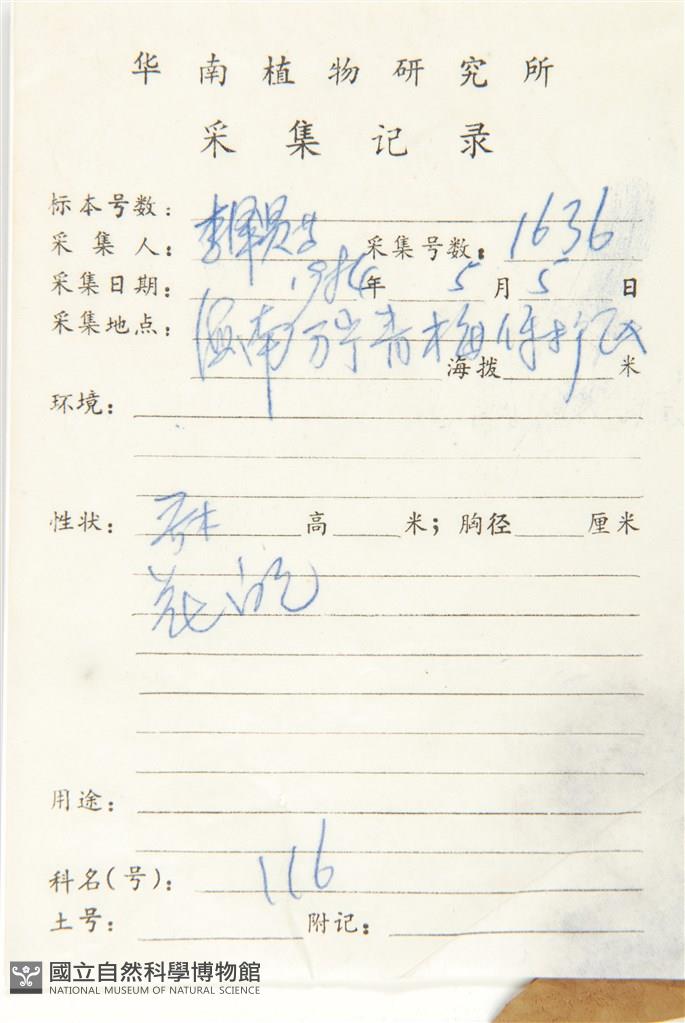 华南植物研究所
采集记录
标本号数：
采集人：李泽贤 采集号数：1636
采集日期：1984年5月5日
采集地点：海南万宁青梅保护区
海拨 米
环境：
性状：乔木 高 米；胸径 厘米
花白色
用途：
科名(号)：116
土号： 附记：
國立自然科學博物館
NATIONAL MUSEUM OF NATURAL SCIENCE